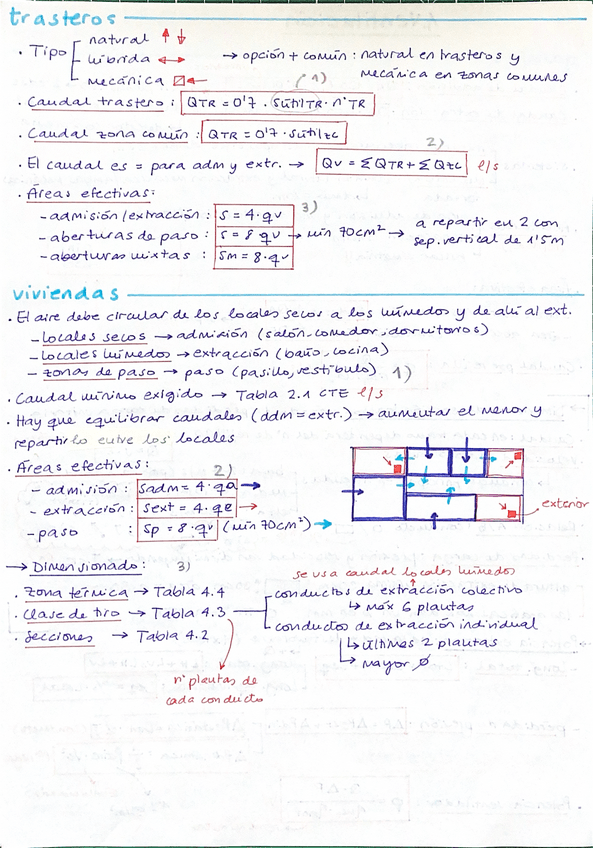 trasteros
natural
· Tipo híbrida → opción + común : natural en trasteros y
mecánica mecánica en zonas comunes
1)
· Caudal trastero : QTR = 0'7 · Sútil TR · nº TR
· Caudal zona común : QTR = 0'7 · Sútil ZC
2)
· El caudal es = para adm y extr. → Qv = ΣQTR + ΣQZC l/s
· Áreas efectivas:
3)
- admisión/extracción : S = 4 · qv
- aberturas de paso : S = 8 qv → mín 70cm² → a repartir en 2 con
sep. vertical de 1'5m
- aberturas mixtas : Sm = 8 · qv
viviendas
· El aire debe circular de los locales secos a los húmedos y de ahí al ext.
- locales secos → admisión (salón-comedor, dormitorios)
- locales húmedos → extracción (baño, cocina)
- zonas de paso → paso (pasillo, vestíbulo) 1)
· Caudal mínimo exigido → Tabla 2.1 CTE l/s
· Hay que equilibrar caudales (adm = extr.) → aumentar el menor y
repartirlo entre los locales
· Áreas efectivas:
2)
- admisión : Sadm = 4 · qa →
- extracción : Sext = 4 · qe →
- paso : Sp = 8 · qv (mín 70cm²) →
exterior
→ Dimensionado: 3)
se usa caudal locales húmedos
· Zona térmica → Tabla 4.4
conductos de extracción colectivo
↳ Máx 6 plantas
· Clase de tiro → Tabla 4.3
conductos de extracción individual
· Secciones → Tabla 4.2
↳ últimas 2 plantas
↳ Mayor ∅
nº plantas de
cada conducto